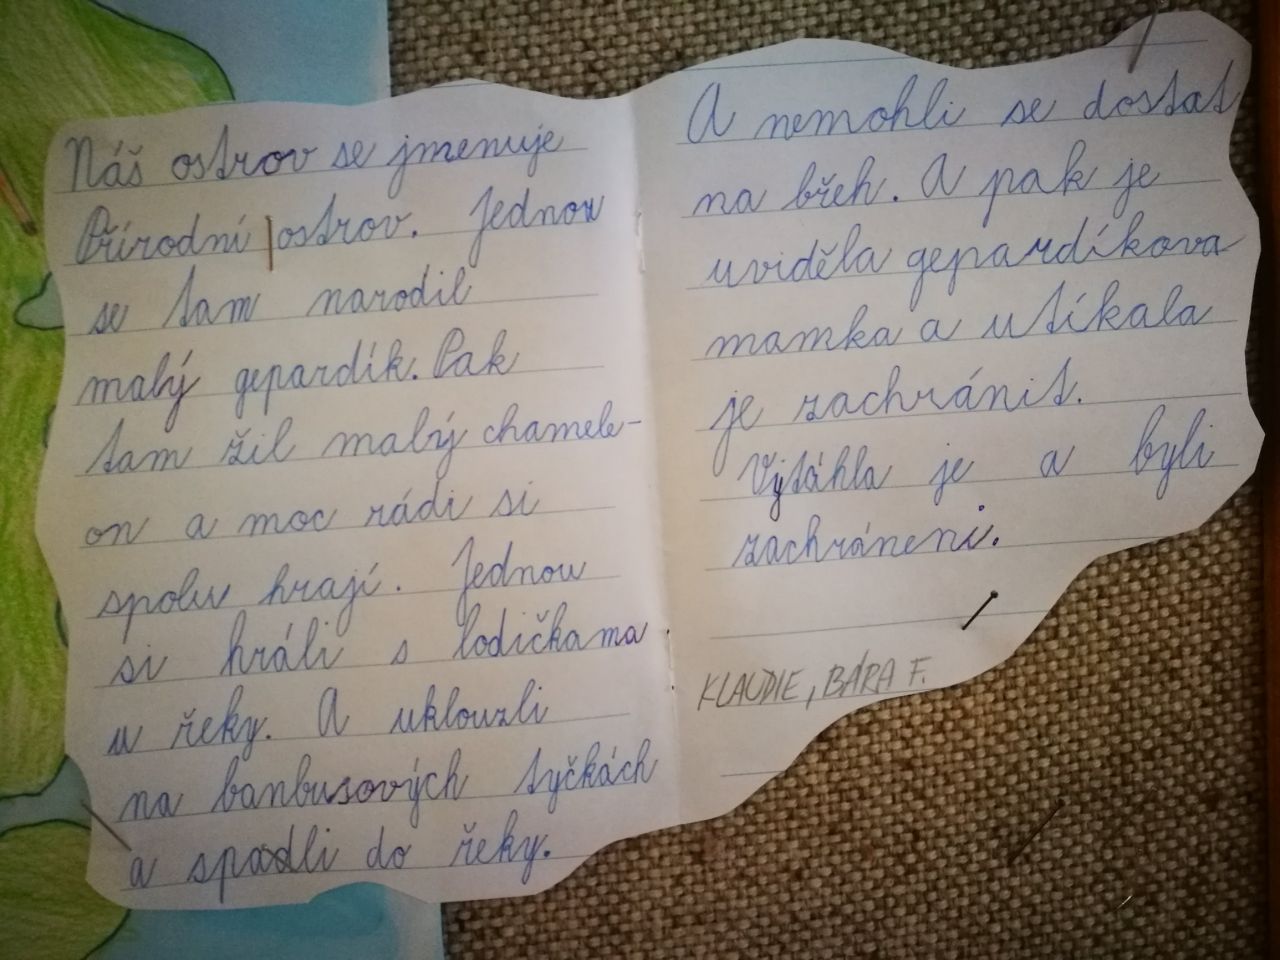 Náš ostrov se jmenuje
Přírodní ostrov. Jednou
se tam narodil
malý gepardík. Pak
tam žil malý chamele-
on a moc rádi si
spolu hrají. Jednou
si hráli s lodičkama
u řeky. A uklouzli
na banbusových tyčkách
a spadli do řeky.
A nemohli se dostat
na břeh. A pak je
uviděla gepardíkova
mamka a utíkala
je zachránit.
Vytáhla je a byli
zachráneni.
KLAUDIE, BÁRA F.